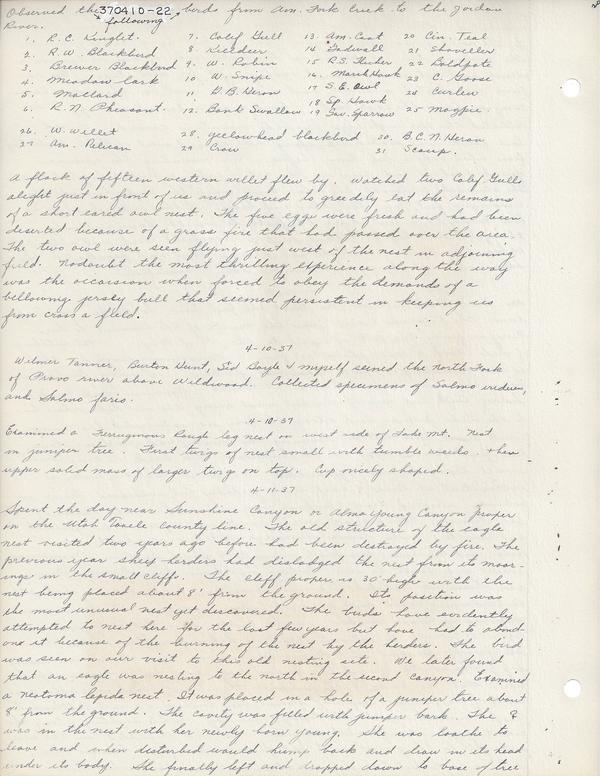 Observed the 370410-22 birds from Am. Fork Creek to the Jordan
following
River.
1. R.C. Kinglet. 7. Calif Gull 13. Am. Coot 20 Cin. Teal
2. R.W. Blackbird 8. Killdeer 14 Gadwall 21 Shoveller
3. Brewer Blackbird 9. W. Robin 15 R.S. Flicker 22 Baldpate
4. Meadow lark 10 W. Snipe 16. Marsh Hawk 23 C. Goose
5. Mallard 11 G.B. Heron 17 S.E. Owl 24 Curlew
6. R.N. Pheasant. 12. Bank Swallow 18 Sp. Hawk 25 Magpie.
19 Sav. Sparrow
26. W. Willet 28. yellowhead blackbird 30. B.C.N. Heron
27 Am. Pelican 29 Crow 31 Scaup.
A flock of fifteen western willet flew by. Watched two Calif Gulls
alight just in front of us and proceed to greedily eat the remains
of a short eared owl nest. The five eggs were fresh and had been
deserted because of a grass fire that had passed over the area.
The two owl were seen flying just west of the nest in adjoining
field. Nodoubt the most thrilling experience along the way
was the occaision when forced to obey the demands of a
bellowing jersey bull that seemed persistent in keeping us
from cross a field.
4-10-37
Wilmer Tanner, Burton Hunt, Sid Boyle & myself seined the North Fork
of Provo river above Wildwood. Collected specimens of Salmo
and Salmo fario.
4-10-37
Examined a Ferruginous Rough leg nest on west side of Lake Mt. Nest
in juniper tree. First twigs of nest small with tumble weeds. then
upper solid mass of larger twigs on top. Cup nicely shaped.
4-11-37
Spent the day near Sunshine Canyon or Alma Young Canyon proper
on the Utah Tooele county line. The old structure of the eagle
nest visited two years ago before had been destroyed by fire. The
previous year sheep herders had dislodged the nest from its moor-
ings in the small cliffs. The cliff proper is 30' high with the
nest being placed about 8' from the ground. Its position was
the most unusual nest yet discovered. The birds have evidently
attempted to nest here for the last few years but have had to aband-
one it because of the burning of the nest by the herders. The bird
was seen on our visit to this old nesting site. We later found
that an eagle was nesting to the north in the second canyon. Examined
a neotoma lepida nest. It was placed in a hole of a juniper tree about
8' from the ground. The cavity was filled with juniper bark. The ♀
was in the nest with her newly born young. She was loathe to
leave and when disturbed would hump back and draw in its head
under its body. She finally left and dropped down to base of tree